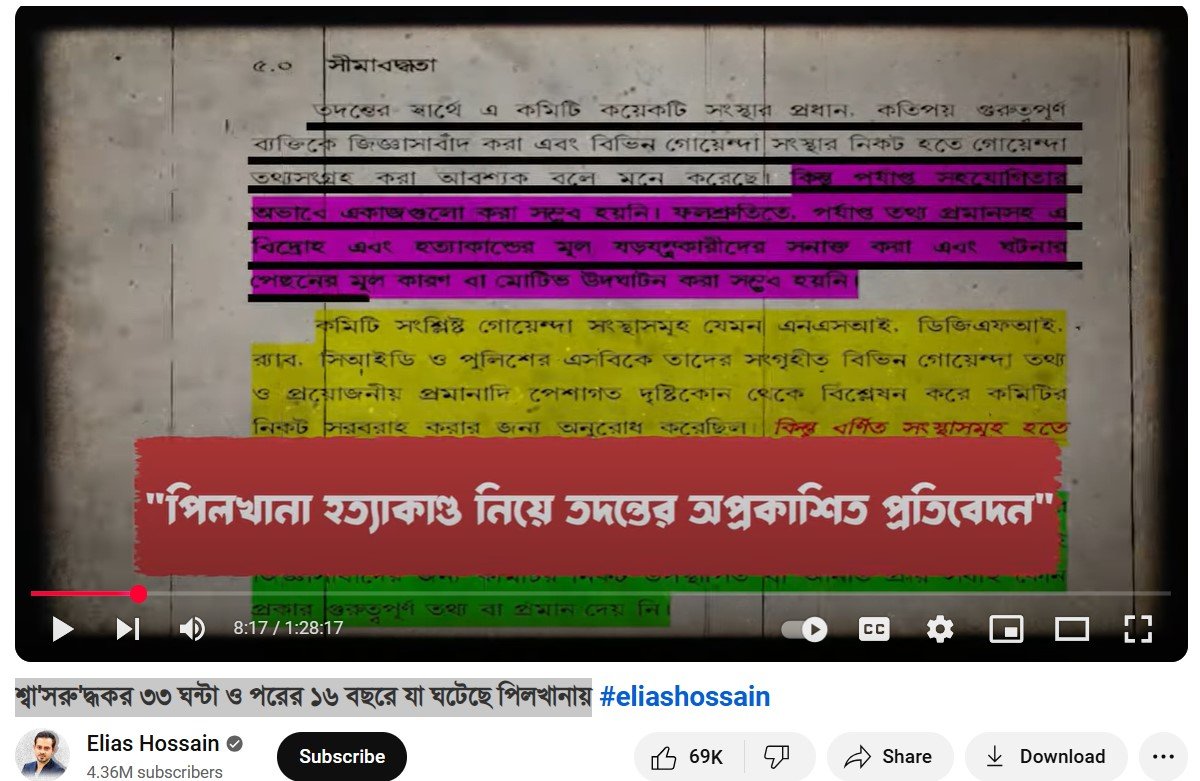 ৫.০ সীমাবদ্ধতা
তদন্তের স্বার্থে এ কমিটি কয়েকটি সংস্থার প্রধান, কতিপয় গুরুত্বপূর্ণ
ব্যক্তিকে জিজ্ঞাসাবাদ করা এবং বিভিন্ন গোয়েন্দা সংস্থার নিকট হতে গোয়েন্দা
তথ্যসংগ্রহ করা আবশ্যক বলে মনে করেছে। কিন্তু পর্যাপ্ত সহযোগিতার
অভাবে একাজগুলো করা সম্ভব হয়নি। ফলশ্রুতিতে, পর্যাপ্ত তথ্য প্রমানসহ এ
বিদ্রোহ এবং হত্যাকান্ডের মূল ষড়যন্ত্রকারীদের সনাক্ত করা এবং ঘটনার
পেছনের মূল কারণ বা মোটিভ উদঘাটন করা সম্ভব হয়নি।
কমিটি সংশ্লিষ্ট গোয়েন্দা সংস্থাসমূহ যেমন এনএসআই, ডিজিএফআই,
র‍্যাব, সিআইডি ও পুলিশের এসবিকে তাদের সংগৃহীত বিভিন্ন গোয়েন্দা তথ্য
ও প্রয়োজনীয় প্রমানাদি পেশাগত দৃষ্টিকোন থেকে বিশ্লেষন করে কমিটির
নিকট সরবরাহ করার জন্য অনুরোধ করেছিল। কিন্তু বর্ণিত সংস্থাসমূহ হতে
"পিলখানা হত্যাকাণ্ড নিয়ে তদন্তের অপ্রকাশিত প্রতিবেদন"
প্রকার গুরুত্বপূর্ণ তথ্য বা প্রমান দেয় নি।
8:17 / 1:28:17
CC
শ্বা'সরু'দ্ধকর ৩৩ ঘন্টা ও পরের ১৬ বছরে যা ঘটেছে পিলখানায় #eliashossain
Elias Hossain
4.36M subscribers
Subscribe
69K
Share
Download